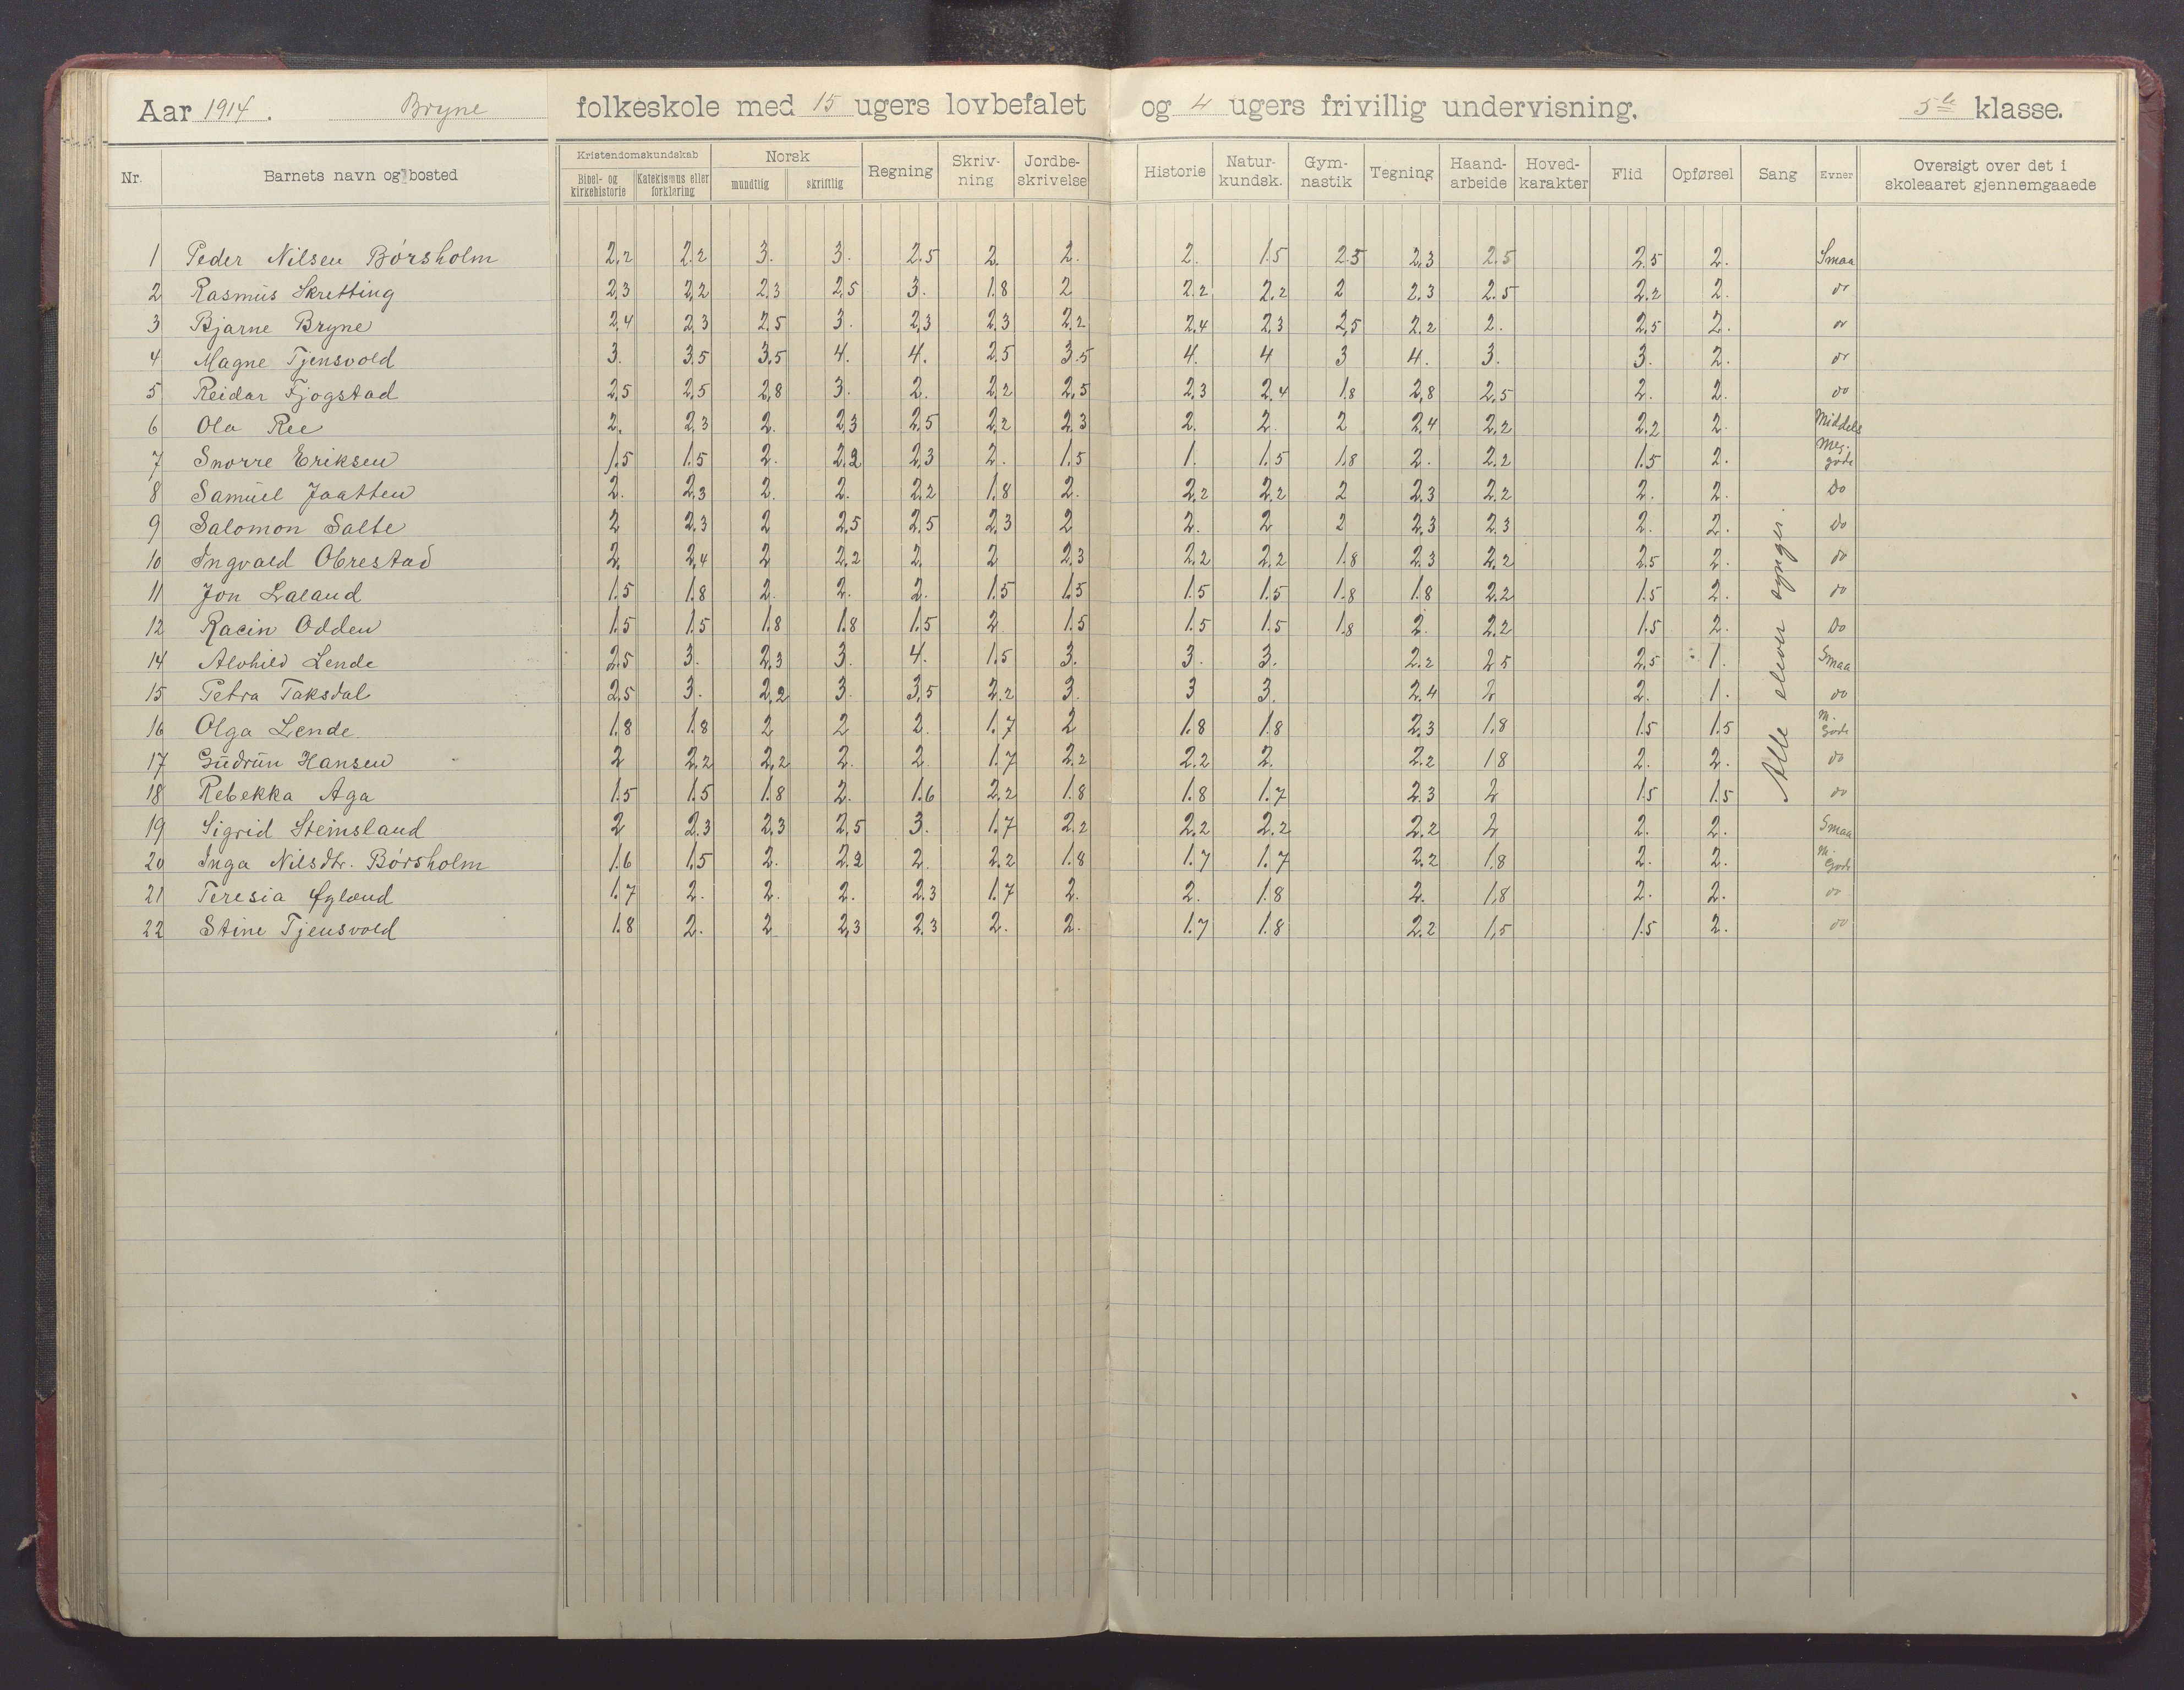 Aar 1914. Bryne folkeskole med 15 ugers lovbefalet og 4 ugers frivillig undervisning. 5te klasse.
Nr. Barnets navn og bosted Kristendomskundskab Bibel- og kirkehistorie Katekismus eller forklaring Norsk mundtlig skriftlig Regning Skriv-ning Jordbe-skrivelse Historie Natur-kundsk. Gym-nastik Tegning Haand-arbeide Hoved-karakter Flid Opførsel Sang Evner Oversigt over det i skoleaaret gjennemgaaede
1 Peder Nilsen Börsholm 2,2 2.2 3. 3. 2,5 2. 2. 2. 1.5 2.5 2,3 2.5 2.5 2. Smaa
2 Rasmus Skretting 2,3 2,2 2,3 2,5 3. 1.8 2 2.2 2.2 2 2.3 2.5 2.2 2. do
3 Bjarne Bryne 2,4 2,3 2,5 3. 2,3 2,3 2,2 2,4 2,3 2,5 2.2 2. 2,5 2. do
4 Magne Tjensvold 3. 3.5 3,5 4. 4. 2.5 3.5 4. 4 3 4. 3. 3. 2. do
5 Reidar Fjogstad 2,5 2,5 2,8 3. 2. 2,2 2,5 2,3 2,4 1.8 2,8 2,5 2. 2. do
6 Ola Ree 2. 2,3 2. 2,3 2,5 2,2 2,3 2. 2. 2 2,4 2,2 2.2 2. Middels
7 Snorre Eriksen 1.5 1.5 2. 2,2 2,3 2. 1.5 1. 1.5 1.8 2. 2.2 1.5 2. Meg. gode
8 Samuel Jaatten 2. 2,3 2. 2. 2,2 1.8 2. 2,2 2,2 2 2,3 2,2 2. 2. Do
9 Salomon Salte 2 2,3 2 2,5 2,5 2,3 2 2. 2 2 2,3 2,3 2. 2. Do
10 Ingvald Obrestad 2. 2,4 2 2,2 2. 2 2,3 2.2 2.2 1.8 2.3 2,2 2.5 2. do
11 Jon Laland 1.5 1.8 2. 2. 2. 1.5 1.5 1.5 1.5 1.8 1.8 2.2 1.5 2. do
12 Racin Odden 1.5 1.5 1.8 1.8 1.5 2. 1.5 1.5 1.5 1.8 2. 2.2 1.5 2. Do
14 Alvhild Lende 2,5 3. 2,3 3. 4. 1.5 3. 3. 3. 2.2 2.5 2,5 1. Smaa
15 Petra Taksdal 2,5 3. 2,2 3. 3,5 2.2 3. 3 3. 2.4 2 2. 1. do
16 Olga Lende 1.8 1.8 2 2 2. 1.7 2 1.8 1.8 2.3 1.8 1.5 1.5 M. Gode
17 Gudrun Hansen 2 2,2 2,2 2. 2. 1.7 2.2 2.2 2. 2.2 1.8 2. 2. do
18 Rebekka Aga 1.5 1.5 1.8 2. 1.6 2,2 1.8 1.8 1.7 2.3 2 1.5 1.5 do
19 Sigrid Steinsland 2 2,3 2,3 2,5 3. 1.7 2.2 2.2 2.2 2.2 2 2. 2. Smaa
20 Inga Nilsdtr. Börsholm 1.6 1.5 2. 2.2 2. 2.2 1.8 1.7 1.7 2.2 1.8 2. 2. M. Gode
21 Teresia Øglænd 1.7 2. 2. 2. 2.3 1.7 2. 2. 1.8 2. 1,8 2. 2. do
22 Stine Tjensvold 1.8 2. 2 2,3 2.3 2. 2. 1.7 1.8 2.2 1,5 1.5 2. do
Alle elever synger.